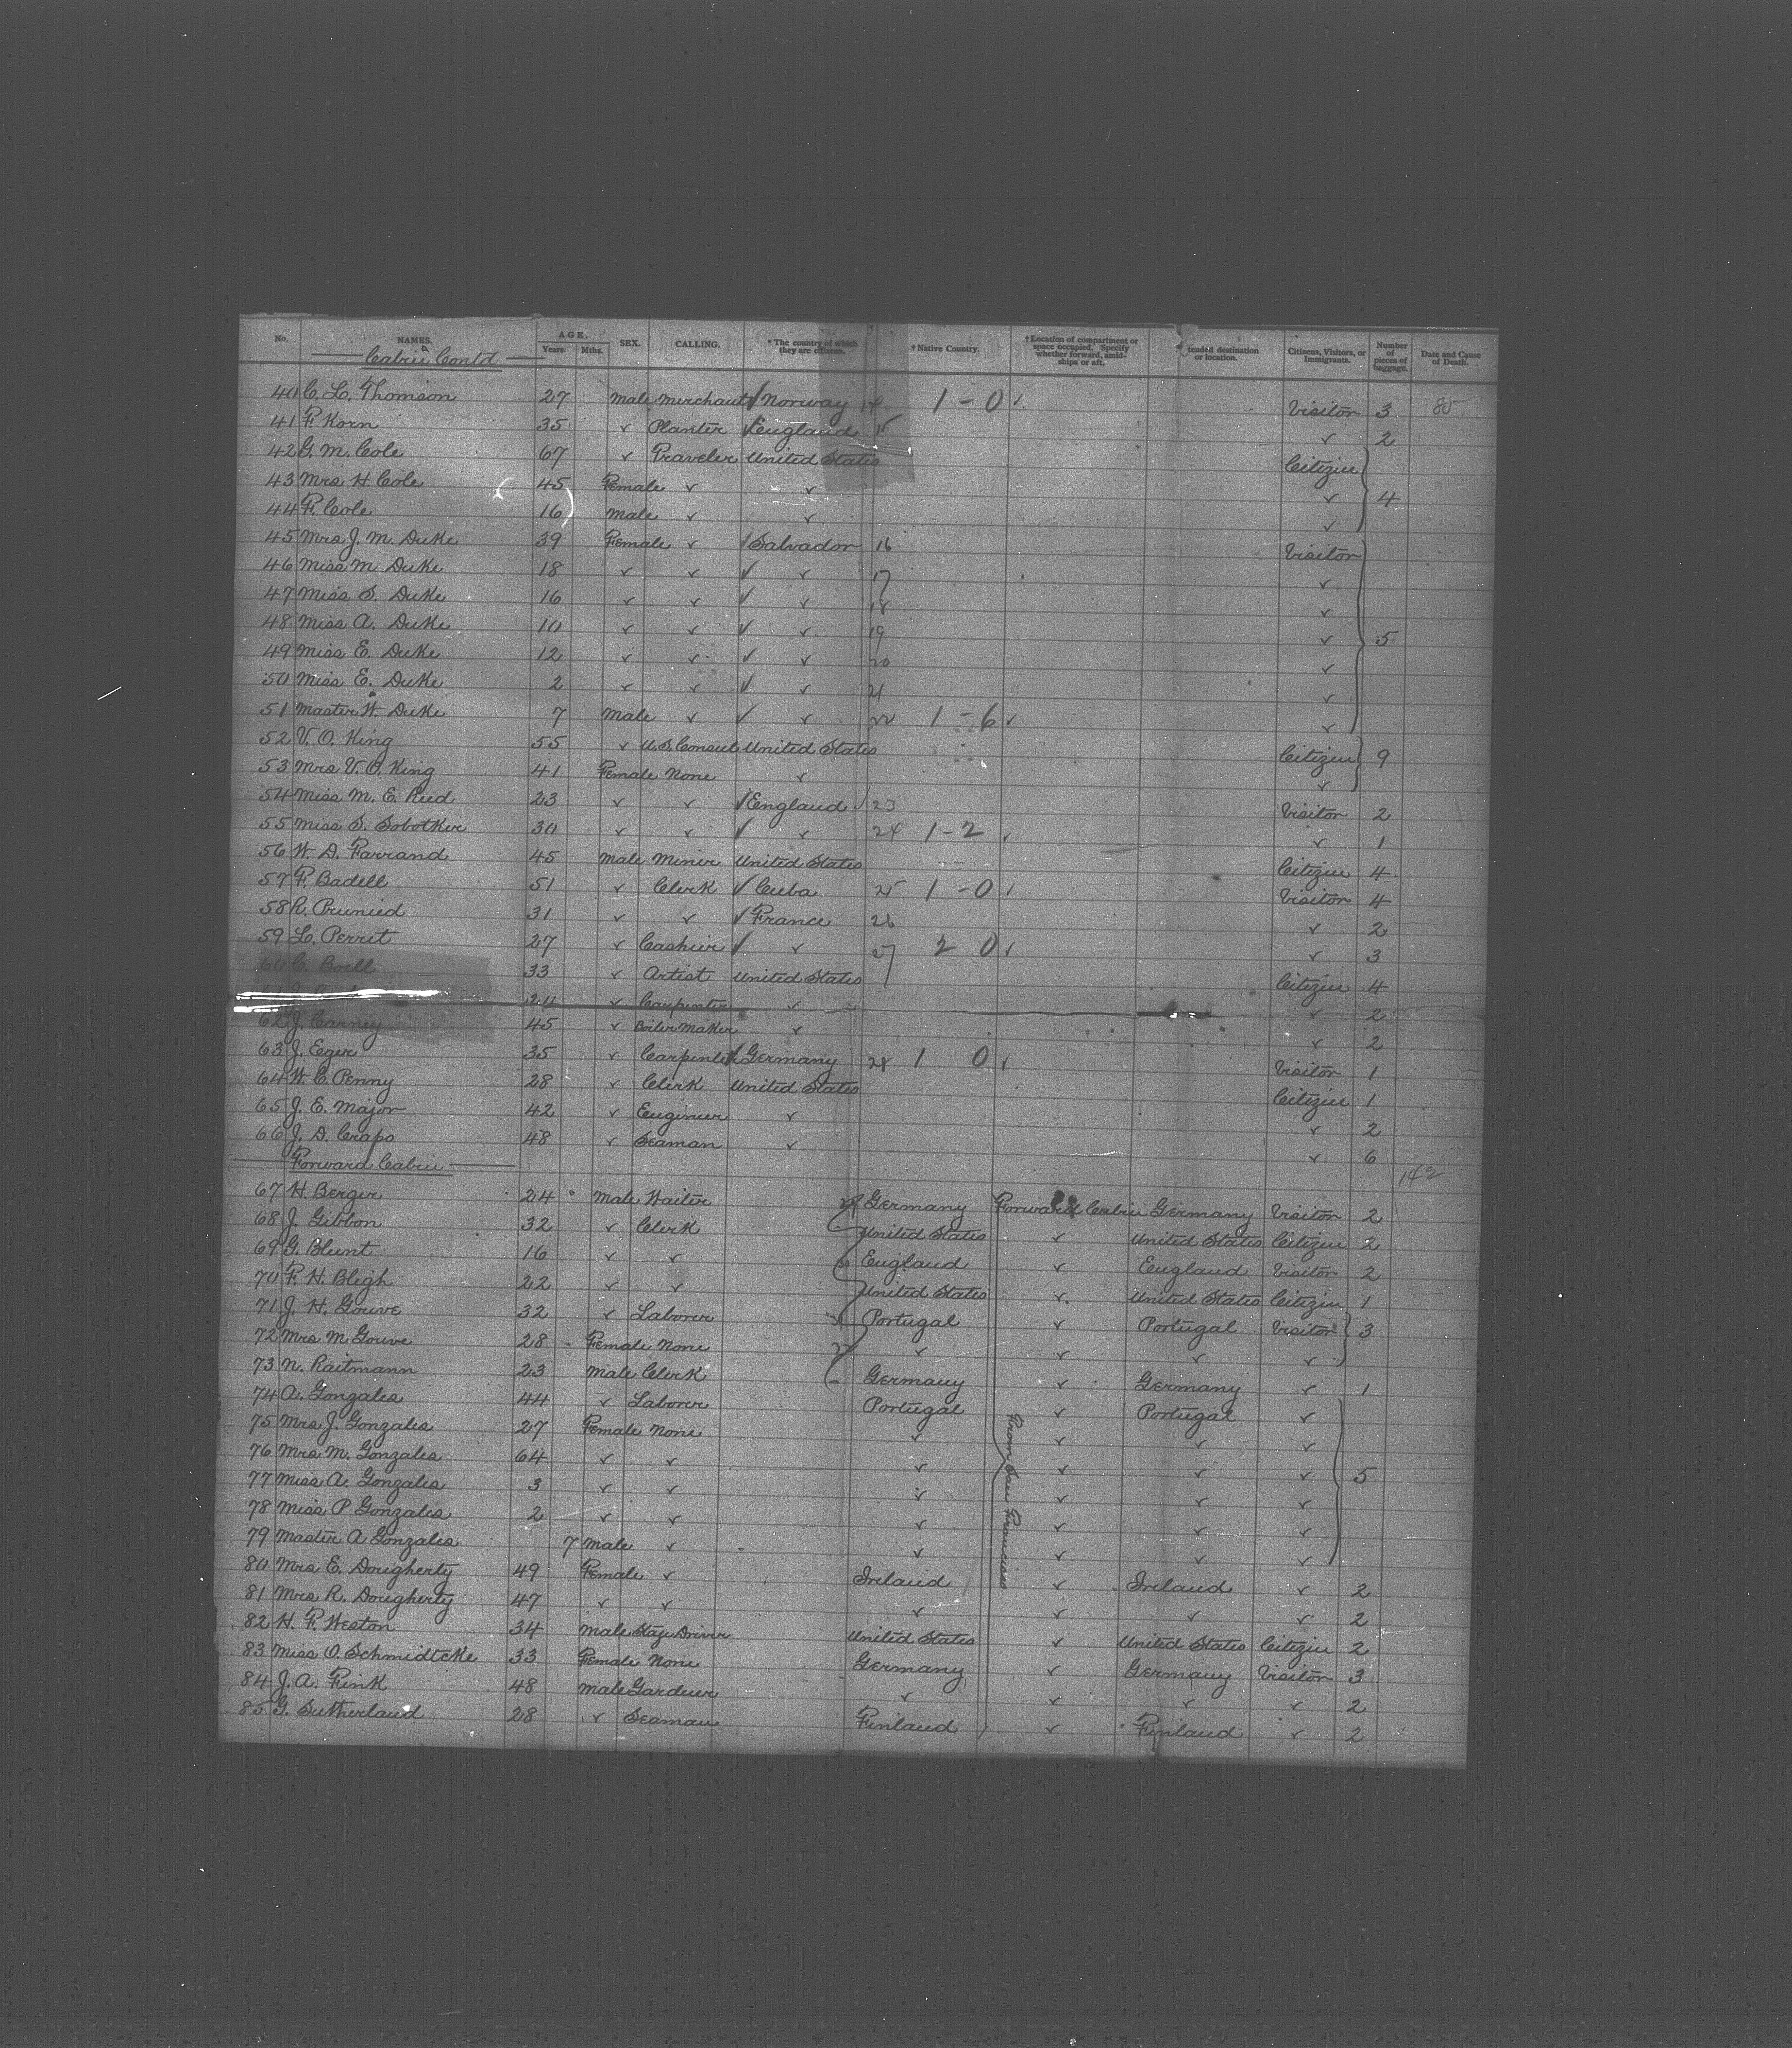 No. NAMES. AGE. Years. Mths. SEX. CALLING. * The country of which they are citizens. † Native Country. † Location of compartment or space occupied. Specify whether forward, amidships or aft. tended destination or location. Citizens, Visitors, or Immigrants. Number of pieces of baggage. Date and Cause of Death.
Cabin Contd
40 C. L. Thomson 27 male merchant ✓ Norway 14 1 - 0 ✓ Visitor 3 85
41 F. Korn 35 ✓ Planter ✓ England 15 ✓ 2
42 G. M. Cole 67 ✓ Traveler United States Citizen
43 Mrs H. Cole 45 Female ✓ ✓ ✓ 4
44 F. Cole 16 male ✓ ✓ ✓
45 Mrs J. M. Duke 39 Female ✓ ✓ Salvador 16 Visitor
46 Miss M. Duke 18 ✓ ✓ ✓ ✓ 17 ✓
47 Miss S. Duke 16 ✓ ✓ ✓ ✓ 18 ✓
48 Miss A. Duke 10 ✓ ✓ ✓ ✓ 19 ✓ 5
49 Miss E. Duke 12 ✓ ✓ ✓ ✓ 20 ✓
50 Miss E. Duke 2 ✓ ✓ ✓ ✓ 21 ✓
51 Master W. Duke 7 male ✓ ✓ ✓ 22 1 - 6 ✓ ✓
52 V. O. King 55 ✓ U.S. Consul United States Citizen 9
53 Mrs V. O. King 41 Female None ✓ ✓
54 Miss M. E. Reed 23 ✓ ✓ ✓ England ✓ 23 Visitor 2
55 Miss S. Sobotker 30 ✓ ✓ ✓ ✓ 24 1 - 2 ✓ ✓ 1
56 W. D. Farrand 45 male Miner United States Citizen 4
57 F. Badell 51 ✓ Clerk ✓ Cuba 25 1 - 0 ✓ Visitor 4
58 R. Prunied 31 ✓ ✓ ✓ France 26 ✓ 2
59 L. Perret 27 ✓ Cashier ✓ ✓ 27 2 0 ✓ ✓ 3
60 C. Boell 33 ✓ Artist United States Citizen 4
✓ Carpenter ✓ ✓ 2
62 J. Carney 45 ✓ Boiler Maker ✓ ✓ 2
63 J. Eger 35 ✓ Carpenter ✓ Germany 28 1 0 ✓ Visitor 1
64 W. C. Penny 28 ✓ Clerk United States Citizen 1
65 J. E. Major 42 ✓ Engineer ✓ ✓ 2
66 J. D. Crapo 48 ✓ Seaman ✓ ✓ 6
Forward Cabin 142
67 H. Berger 24 male Waiter 29 Germany Forward Cabin Germany Visitor 2
68 J. Gibbon 32 ✓ Clerk United States ✓ United States Citizen 2
69 G. Blunt 16 ✓ ✓ England ✓ England Visitor 2
70 F. H. Bligh 22 ✓ ✓ United States ✓ United States Citizen 1
71 J. H. Gouve 32 ✓ Laborer Portugal ✓ Portugal Visitor 3
72 Mrs M. Gouve 28 Female None ✓ ✓ ✓ ✓
73 N. Raitmann 23 Male Clerk Germany ✓ Germany ✓ 1
74 A. Gonzales 44 ✓ Laborer Portugal ✓ Portugal ✓
75 Mrs J. Gonzales 27 Female None ✓ ✓ ✓ ✓
76 Mrs M. Gonzales 64 ✓ ✓ ✓ ✓ ✓ ✓ 5
77 Miss A. Gonzales 3 ✓ ✓ ✓ ✓ ✓ ✓
78 Miss P Gonzales 2 ✓ ✓ ✓ ✓ ✓ ✓
79 Master A Gonzales 7 Male ✓ ✓ ✓ ✓ ✓
80 Mrs E. Dougherty 49 Female ✓ Ireland ✓ Ireland ✓ 2
81 Mrs R. Dougherty 47 ✓ ✓ ✓ ✓ ✓ ✓ 2
82 H. F. Weston 34 Male Stage Driver United States ✓ United States Citizen 2
83 Miss O. Schmidtcke 33 Female None Germany ✓ Germany Visitor 3
84 J. A. Fink 48 Male Gardner ✓ ✓ ✓ ✓ 2
85 G. Sutherland 28 ✓ Seaman Finland ✓ Finland ✓ 2
From San Francisco